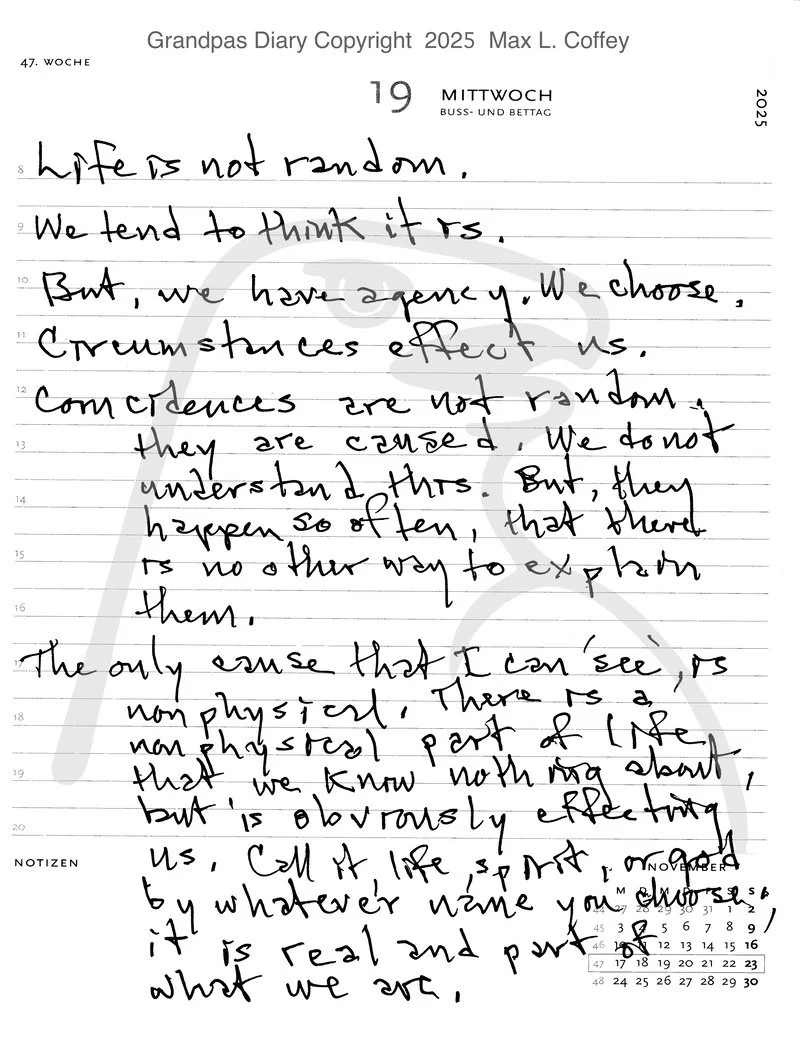 Grandpas Diary Copyright 2025 Max L. Coffey
47. WOCHE
19 MITTWOCH
BUSS- UND BETTAG
2025
8 Life is not random.
9 We tend to think it is.
10 But, we have agency. We choose.
11 Circumstances effect us.
12 Coincidences are not random.
13 they are caused. We do not
understand this. But, they
14 happen so often, that there
15 is no other way to explain
16 them.
17 The only cause that I can 'see', is
nonphysical. There is a
18 nonphysical part of life
19 that we know nothing about,
but is obviously effecting
20
NOTIZEN
us. Call it, life, spirit, or god
by whatever name you choose,
it is real and part of
what we are.
NOVEMBER
M D M D F S S
44 27 28 29 30 31 1 2
45 3 4 5 6 7 8 9
46 10 11 12 13 14 15 16
47 17 18 19 20 21 22 23
48 24 25 26 27 28 29 30